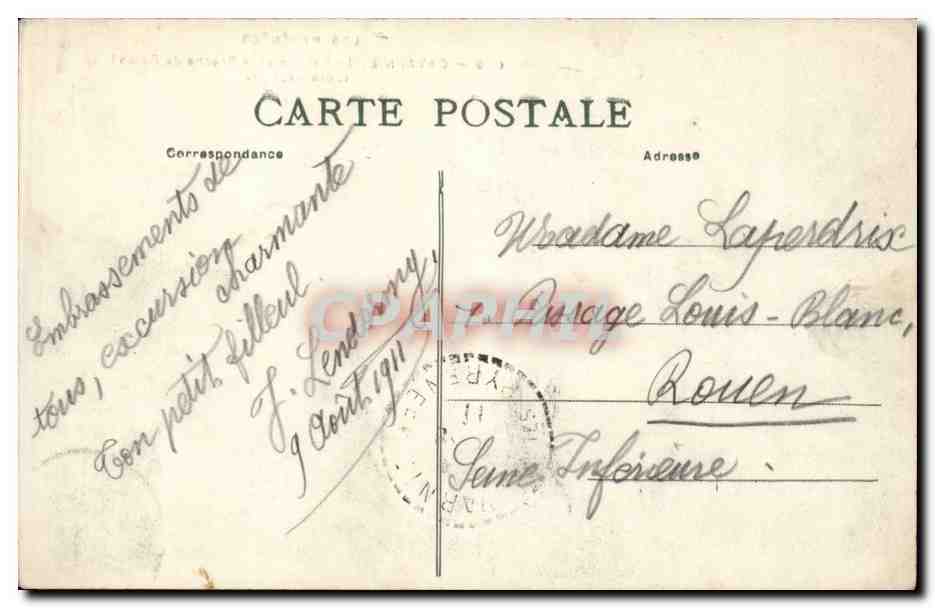 CARTE POSTALE
Correspondance
Adresse
Embrassements de
tous, excursion
charmante
Ton petit filleul
J. Lendormy,
9 Août 1911
Madame Laperdrix
Passage Louis-Blanc,
Rouen
Seine Inférieure.
CPAPHIL